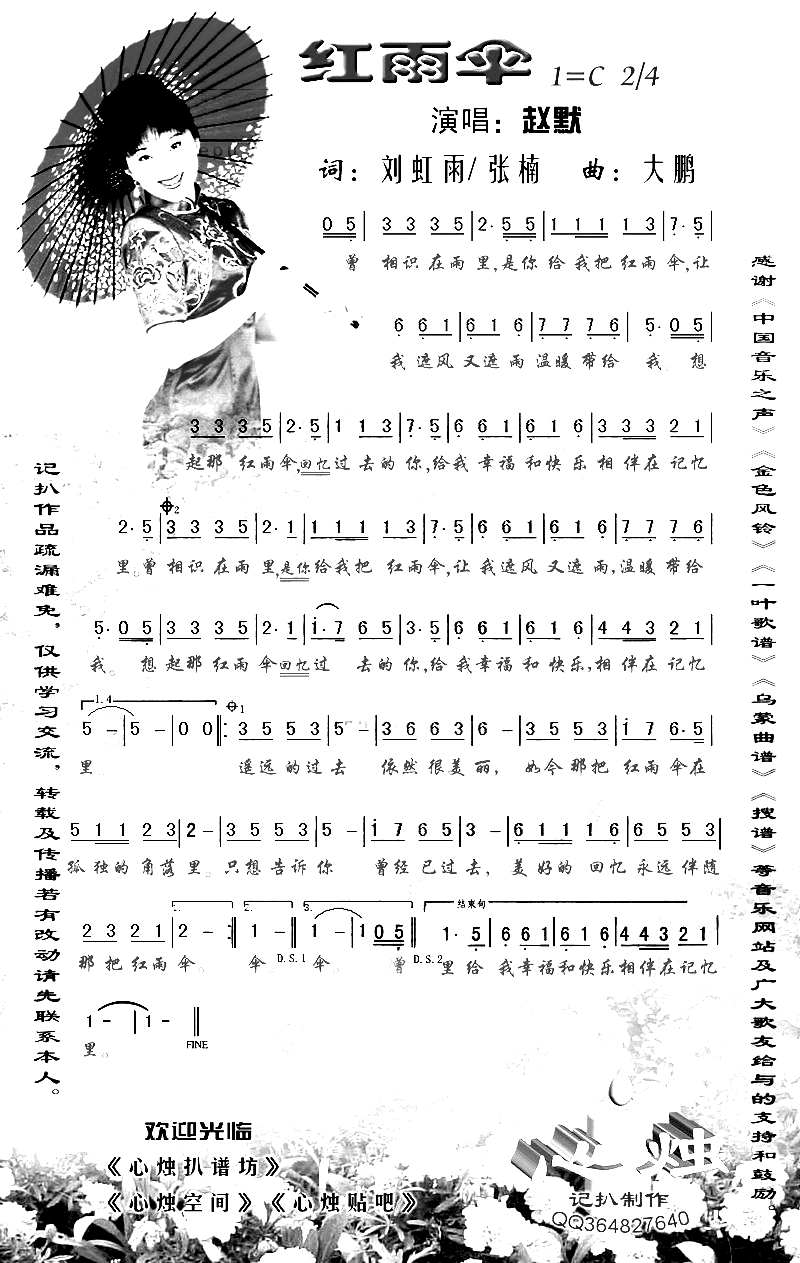 红雨伞 1=C 2/4
演唱：赵默
词：刘虹雨/张楠 曲：大鹏
0 5 | 3 3 3 5 | 2· 5 5 | 1 1 1 1 3 | 7· 5 |
曾 相识在雨里,是你给我把红雨伞,让
6 6 1 | 6 1 6 | 7 7 7 6 | 5· 0 5 |
我遮风又遮雨温暖带给 我 想
3 3 3 5 | 2· 5 | 1 1 3 | 7· 5 | 6 6 1 | 6 1 6 | 3 3 3 2 1 |
起那红雨伞,回忆过去的你,给我幸福和快乐相伴在记忆
2· 5 | 3 3 3 5 | 2· 1 | 1 1 1 1 3 | 7· 5 | 6 6 1 | 6 1 6 | 7 7 7 6 |
里。曾相识在雨里,是你给我把红雨伞,让我遮风又遮雨,温暖带给
5· 0 5 | 3 3 3 5 | 2· 1 | i· 7 6 5 | 3· 5 | 6 6 1 | 6 1 6 | 4 4 3 2 1 |
我。想起那红雨伞回忆过 去的你,给我幸福和快乐,相伴在记忆
1.4
5 - | 5 - | 0 0 :| 3 5 5 3 | 5 - | 3 6 6 3 | 6 - | 3 5 5 3 | i 7 | 6· 5 |
里 遥远的过去 依然很美丽， 如今那把红雨伞在
5 1 1 2 3 | 2 - | 3 5 5 3 | 5 - | i 7 6 5 | 3 - | 6 1 1 1 6 | 5 6 5 3 |
孤独的角落里。只想告诉你 曾经已过去，美好的回忆永远伴随
1. 2. 3. 结束句
2 3 2 1 | 2 - :| 1 - | 1 - | 1 0 5 | 1· 5 | 6 6 1 | 6 1 6 | 4 4 3 2 1 |
那把红雨伞。 伞 D.S.1 伞 曾 D.S.2 里给我幸福和快乐相伴在记忆
1 - | 1 - ‖
里。 FINE
记扒作品疏漏难免，仅供学习交流，转载及传播若有改动请先联系本人。
感谢《中国音乐之声》《金色风铃》《一叶歌谱》《乌蒙曲谱》《搜谱》等音乐网站及广大歌友给与的支持和鼓励。
欢迎光临
《心烛扒谱坊》
《心烛空间》《心烛贴吧》
心烛
记扒制作
QQ364827640